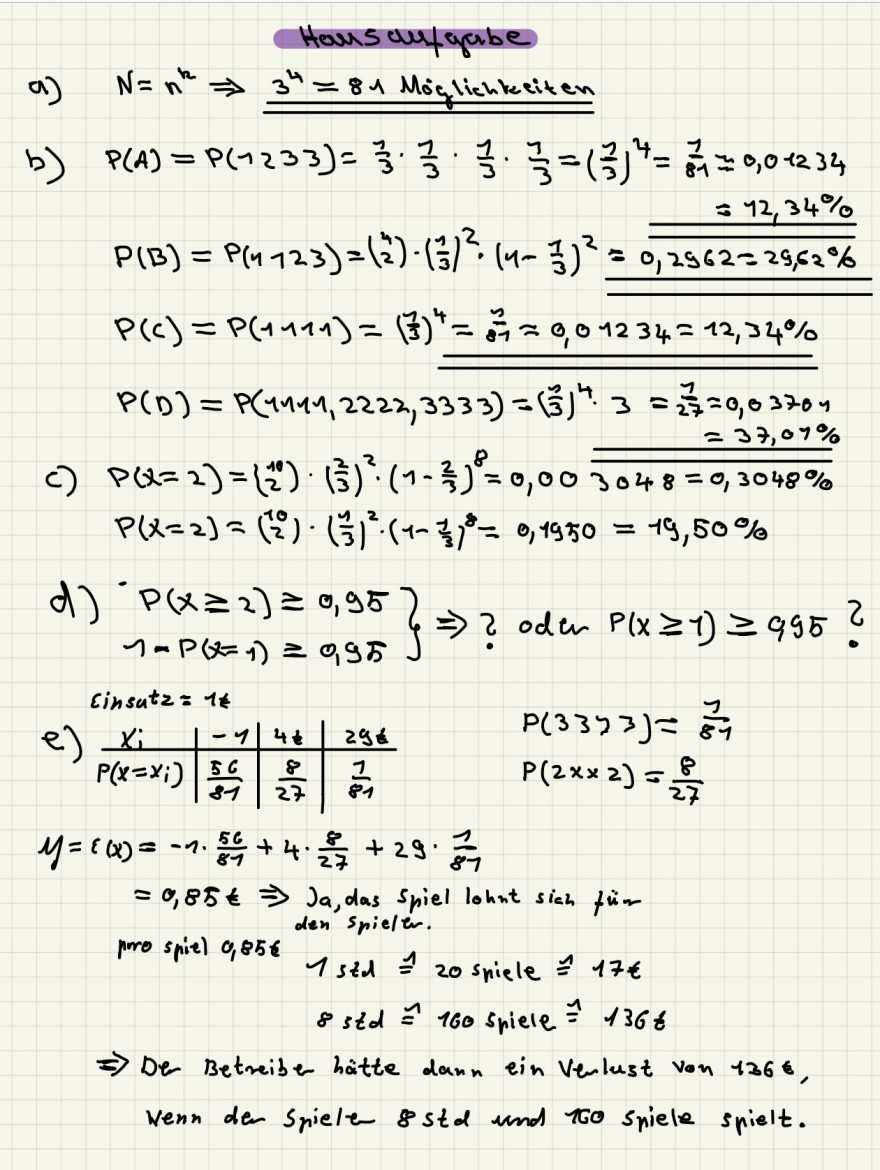 Hausaufgabe
a) N = n^k ⇒ 3^4 = 81 Möglichkeiten
b) P(A) = P(1233) = 1/3 · 1/3 · 1/3 · 1/3 = (1/3)^4 = 1/81 ≈ 0,01234
= 12,34%
P(B) = P(1123) = (4 2) · (1/3)^2 · (1 - 1/3)^2 = 0,2962 = 29,62%
P(C) = P(1111) = (1/3)^4 = 1/81 = 0,01234 = 12,34%
P(D) = P(1111, 2222, 3333) = (1/3)^4 · 3 = 1/27 = 0,03701
= 37,01%
c) P(X = 2) = (10 2) · (2/3)^2 · (1 - 2/3)^8 = 0,003048 = 0,3048%
P(X = 2) = (10 2) · (1/3)^2 · (1 - 1/3)^8 = 0,1950 = 19,50%
d) P(X ≥ 2) ≥ 0,95 } ⇒ ? oder P(X ≥ 1) ≥ 0,95 ?
1 - P(X = 1) ≥ 0,95
Einsatz = 1€
e) Xi | -1 | 4€ | 29€ P(3333) = 1/81
P(X = xi) | 56/81 | 8/27 | 1/81 P(2xx2) = 8/27
M = E(X) = -1 · 56/81 + 4 · 8/27 + 29 · 1/81
= 0,85€ ⇒ Ja, das Spiel lohnt sich für
den Spieler.
pro spiel 0,85€
1 std ≙ 20 spiele ≙ 17€
8 std ≙ 160 spiele ≙ 136€
⇒ Der Betreiber hätte dann ein Verlust von 136€,
wenn der Spieler 8 std und 160 spiele spielt.